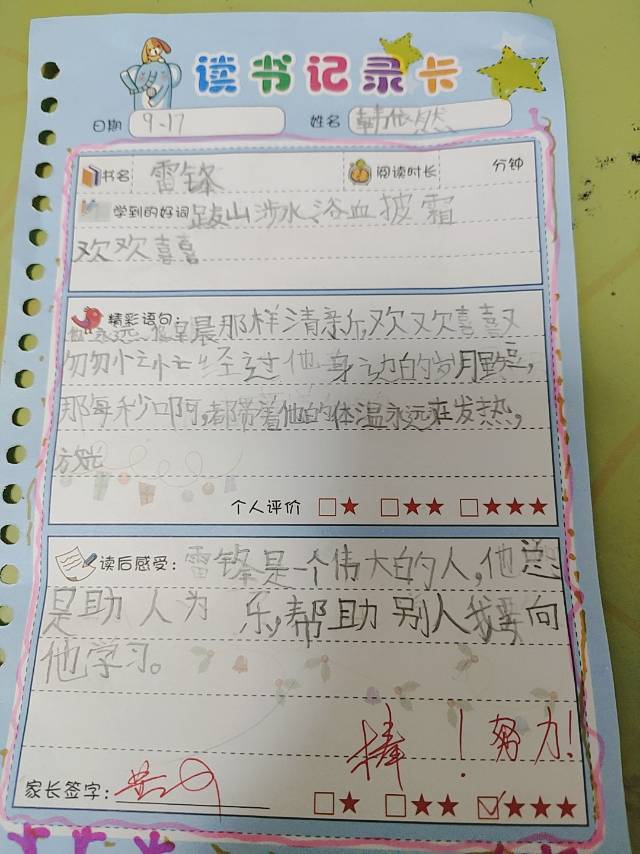 读书记录卡
日期 9.17 姓名 韩依然
书名 雷锋 阅读时长 分钟
学到的好词 跋山涉水、浴血披霜
欢欢喜喜
精彩语句: 他永远 早晨那样清亲斤,欢欢喜喜又
匆匆忙忙经过他身边的岁月
那每秒口阿,都带着他的体温永远在发热,
放光
个人评价 ★ ★★ ★★★
读后感受: 雷锋是一个伟大的人,他总
是助人为乐,帮助别人我要向
他学习。
棒!努力!
家长签字: ★ ★★ ★★★